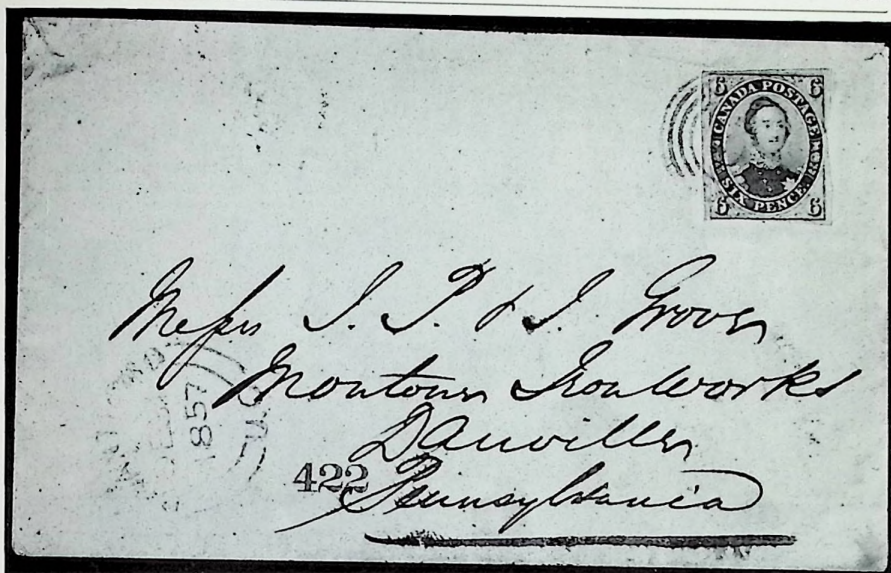 6 6
CANADA POSTAGE
SIX PENCE
6 6
Messrs I. P. & I. Grove
Montour Iron Works
Danville
422
Pennsylvania
1857